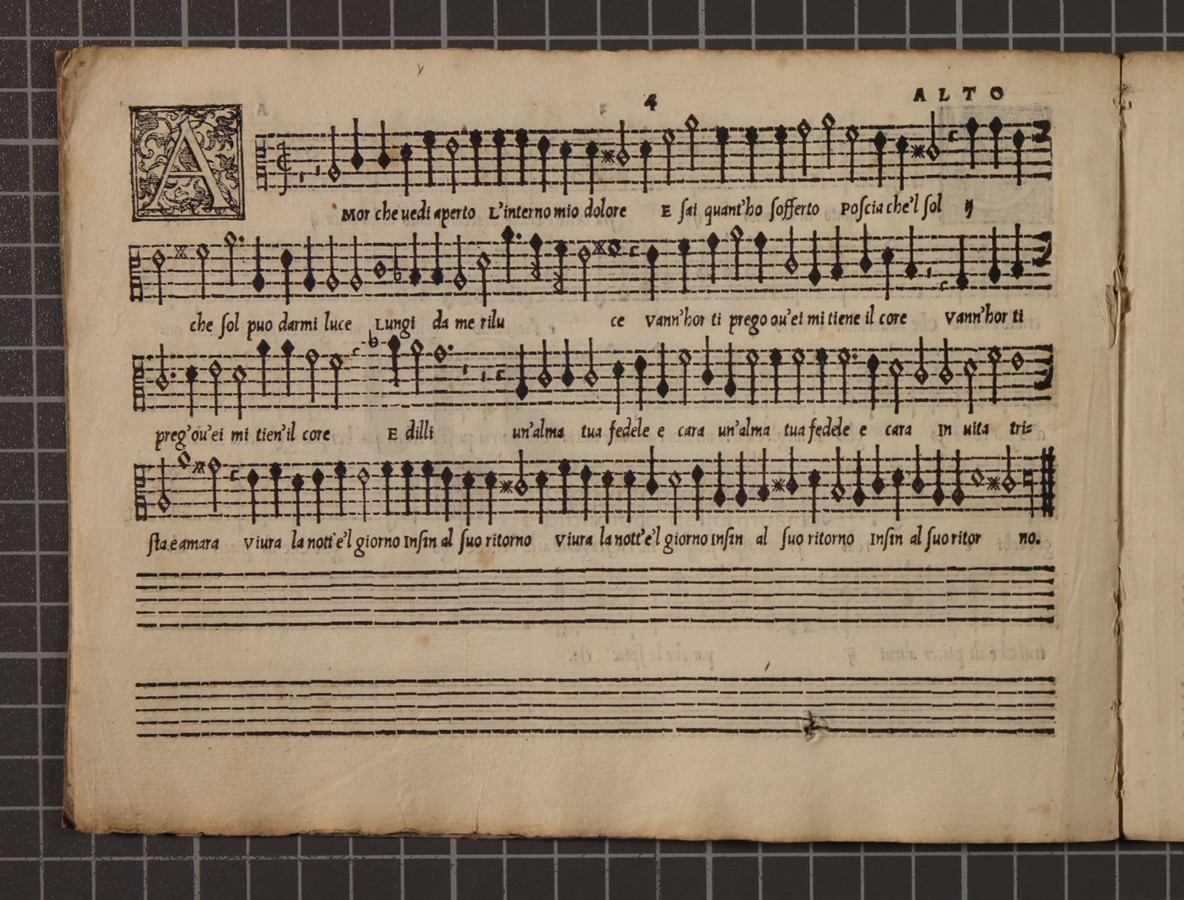 4
ALTO
AMor che uedi aperto L'interno mio dolore E sai quant'ho sofferto Poscia che'l sol ij
che sol puo darmi luce Lungi da me rilu ce Vann'hor ti prego ou'ei mi tiene il core Vann'hor ti
preg'ou'ei mi tien'il core E dilli un'alma tua fedele e cara un'alma tua fedele e cara In uita tri=
sta e amara Viura la nott'e'l giorno Insin al suo ritorno Viura la nott'e'l giorno Insin al suo ritorno Insin al suo ritor no.